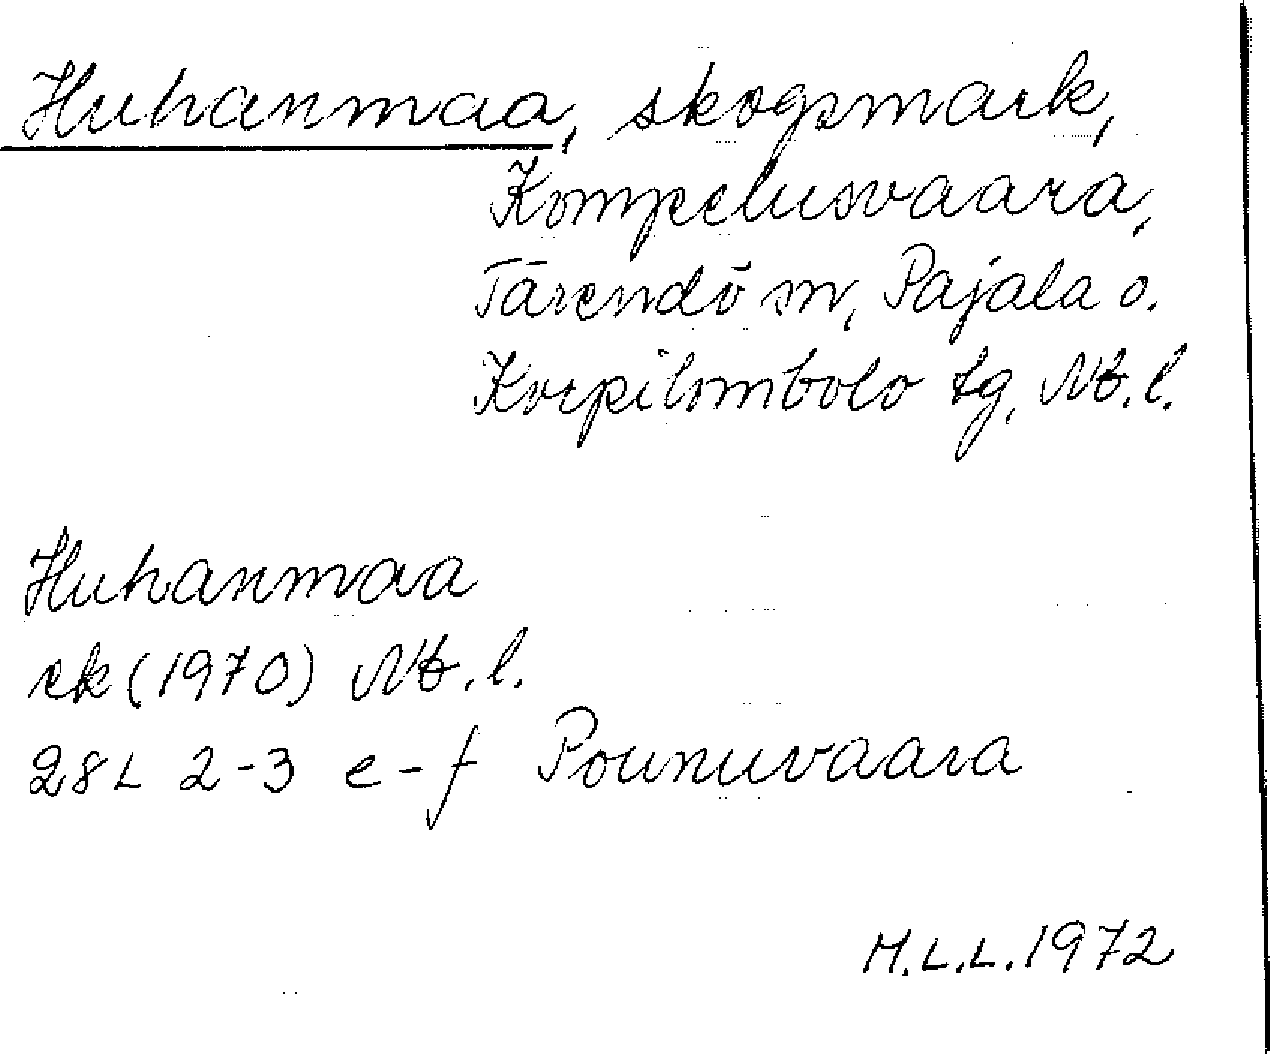 Huhanmaa, skogsmark,
Kompelusvaara,
Tärendö sn, Pajala o.
Korpilombolo tg, Nb. l.
Huhanmaa
ek (1970) Nb. l.
28L 2-3 e-f Pounuvaara
M.L.L. 1972